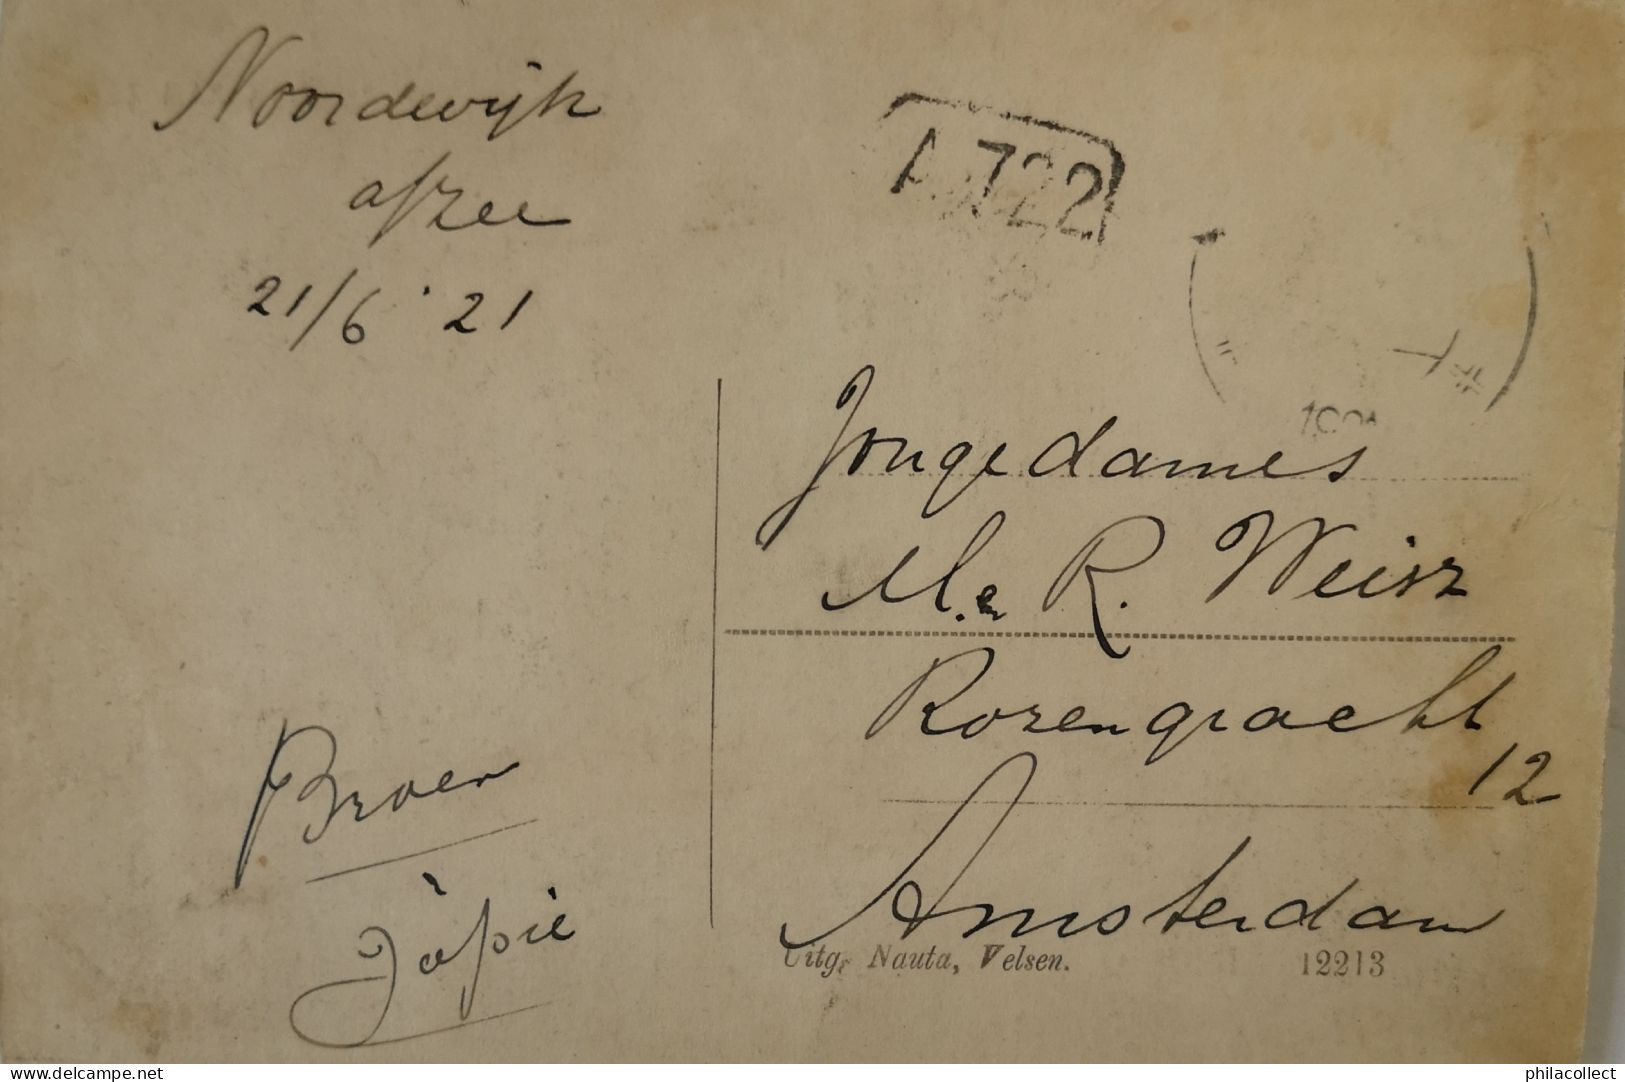 Noordwijk
a/zee
21/6 '21
A 722
Jongedames
M. en R. Weisz
Rozengracht
12
Amsterdam
Broer
Jàpie
Uitg. Nauta, Velsen.
12213
philacollect
www.delcampe.net